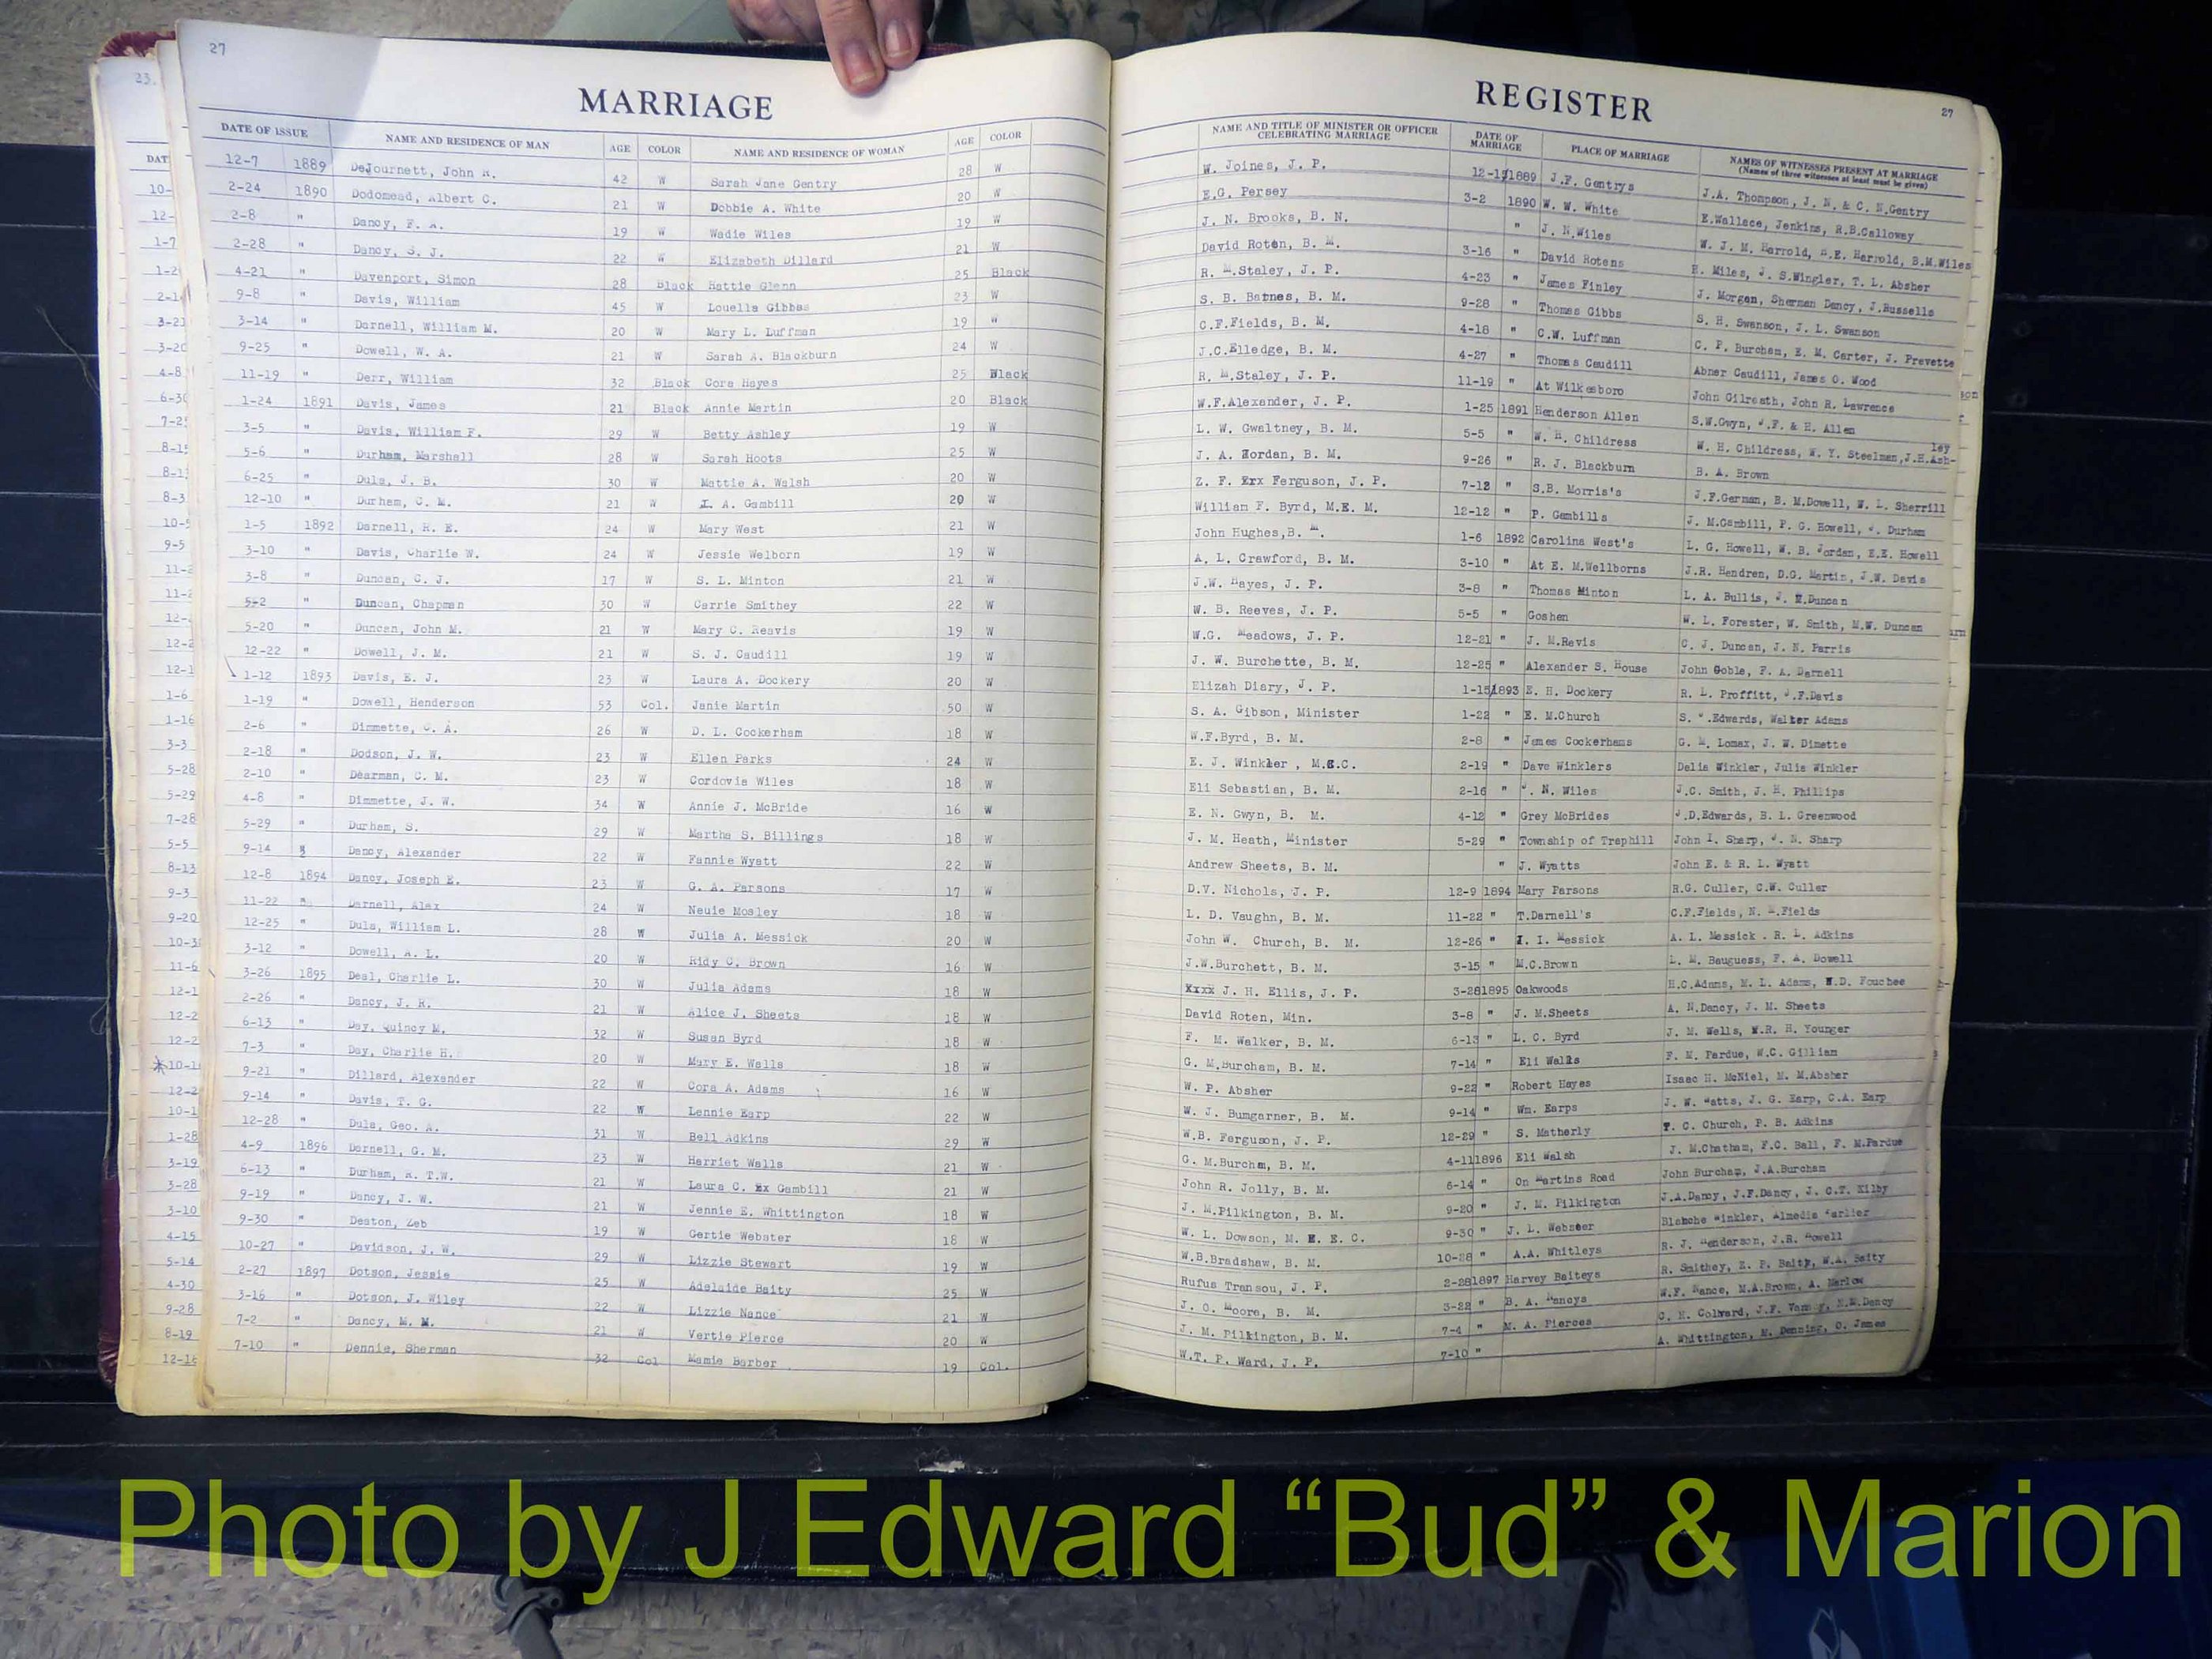 27
MARRIAGE
DATE OF ISSUE NAME AND RESIDENCE OF MAN AGE COLOR NAME AND RESIDENCE OF WOMAN AGE COLOR
12-7 1889 DeJournett, John R. 42 W Sarah Jane Gentry 28 W
2-24 1890 Dodomead, Albert C. 21 W Dobbie A. White 20 W
2-8 " Dancy, F. A. 19 W Wadie Wiles 19 W
2-28 " Dancy, S. J. 22 W Elizabeth Dillard 21 W
4-21 " Davenport, Simon 28 Black Hattie Glenn 25 Black
9-8 " Davis, William 45 W Louella Gibbs 23 W
3-14 " Darnell, William M. 20 W Mary L. Luffman 19 W
9-25 " Dowell, W. A. 21 W Sarah A. Blackburn 24 W
11-19 " Derr, William 32 Black Cora Hayes 25 Black
1-24 1891 Davis, James 21 Black Annie Martin 20 Black
3-5 " Davis, William F. 29 W Betty Ashley 19 W
5-6 " Durham, Marshall 28 W Sarah Hoots 25 W
6-25 " Dula, J. B. 30 W Mattie A. Walsh 20 W
12-10 " Durham, C. M. 21 W I. A. Gambill 20 W
1-5 1892 Darnell, R. E. 24 W Mary West 21 W
3-10 " Davis, Charlie W. 24 W Jessie Welborn 19 W
3-8 " Duncan, C. J. 17 W S. L. Minton 21 W
5-2 " Duncan, Chapman 30 W Carrie Smithey 22 W
5-20 " Duncan, John M. 21 W Mary C. Reavis 19 W
12-22 " Dowell, J. M. 21 W S. J. Caudill 19 W
1-12 1893 Davis, E. J. 23 W Laura A. Dockery 20 W
1-19 " Dowell, Henderson 53 Col. Janie Martin 50 W
2-6 " Dimmette, C. A. 26 W D. L. Cockerham 18 W
2-18 " Dodson, J. W. 23 W Ellen Parks 24 W
2-10 " Dearman, C. M. 23 W Cordovia Wiles 18 W
4-8 " Dimmette, J. W. 34 W Annie J. McBride 16 W
5-29 " Durham, S. 29 W Martha S. Billings 18 W
9-14 Dancy, Alexander 22 W Fannie Wyatt 22 W
12-8 1894 Dancy, Joseph E. 23 W G. A. Parsons 17 W
11-22 " Darnell, Alex 24 W Neuie Mosley 18 W
12-25 " Dula, William L. 28 W Julia A. Messick 20 W
3-12 " Dowell, A. L. 20 W Ridy C. Brown 16 W
3-26 1895 Deal, Charlie L. 30 W Julia Adams 18 W
2-26 " Dancy, J. R. 21 W Alice J. Sheets 18 W
6-13 " Day, Quincy M. 32 W Susan Byrd 18 W
7-3 " Day, Charlie H. 20 W Mary E. Walls 18 W
9-21 " Dillard, Alexander 22 W Cora A. Adams 16 W
9-14 " Davis, T. G. 22 W Lennie Earp 22 W
12-28 " Dula, Geo. A. 31 W Bell Adkins 29 W
4-9 1896 Darnell, G. M. 23 W Harriet Walls 21 W
6-13 " Durham, R. T.W. 21 W Laura C. Ex Gambill 21 W
9-19 " Dancy, J. W. 21 W Jennie E. Whittington 18 W
9-30 " Deaton, Zeb 19 W Gertie Webster 18 W
10-27 " Davidson, J. W. 29 W Lizzie Stewart 19 W
2-27 1897 Dotson, Jessie 25 W Adelaide Baity 25 W
3-16 " Dotson, J. Wiley 22 W Lizzie Nance 21 W
7-2 " Dancy, M. M. 21 W Vertie Pierce 20 W
7-10 " Dennie, Sherman 32 Col Mamie Barber 19 Col.
REGISTER
27
NAME AND TITLE OF MINISTER OR OFFICER CELEBRATING MARRIAGE DATE OF MARRIAGE PLACE OF MARRIAGE NAMES OF WITNESSES PRESENT AT MARRIAGE
(Names of three witnesses at least must be given)
W. Joines, J. P. 1889 J.F. Gentrys J.A. Thompson, J. N. & C. N.Gentry
E.G. Persey 3-2 1890 W. W. White E.Wallace, Jenkins, R.B.Calloway
J. N. Brooks, B. N. " J. N.Wiles W. J. M. Harrold, E. Harrold, B.M.Wiles
David Roten, B. M. 3-16 " David Rotens R. Miles, J. S.Wingler, T. L. Absher
R. M.Staley, J. P. 4-23 " James Finley J. Morgan, Sherman Dancy, J.Russells
S. B. Barnes, B. M. 9-28 " Thomas Gibbs S. H. Swanson, J. L. Swanson
C.F.Fields, B. M. 4-18 " C.W. Luffman C. P. Burcham, E. M. Carter, J. Prevette
J.C.Elledge, B. M. 4-27 " Thomas Caudill Abner Caudill, James O. Wood
R. M.Staley, J. P. 11-19 " At Wilkesboro John Gilreath, John R. Lawrence
W.F.Alexander, J. P. 1-25 1891 Henderson Allen S.W.Gwyn, J.F. & H. Allen
L. W. Gwaltney, B. M. 5-5 " W. H. Childress W. H. Childress, W. Y. Steelman,J.H.Ash-ley
J. A. Jordan, B. M. 9-26 " R. J. Blackburn B. A. Brown
Z. F. Erx Ferguson, J. P. 7-12 " S.B. Morris's J.F.German, B. M.Dowell, W. L. Sherrill
William F. Byrd, M.E. M. 12-12 " P. Gambills J. M.Gambill, P. G. Howell, J. Durham
John Hughes,B. M. 1-6 1892 Carolina West's L. G. Howell, W. B. Jordan, E.E. Howell
A. L. Crawford, B. M. 3-10 " At E. M.Wellborns J.R. Hendren, D.G. Martin, J.W. Davis
J.W. Hayes, J. P. 3-8 " Thomas Minton L. A. Bullis, J. E.Duncan
W. B. Reeves, J. P. 5-5 " Goshen W. L. Forester, W. Smith, M.W. Duncan
W.G. Meadows, J. P. 12-21 " J. M.Revis C. J. Duncan, J. N. Parris
J. W. Burchette, B. M. 12-25 " Alexander S. House John Goble, F. A. Darnell
Elizah Diary, J. P. 1-15 1893 E. H. Dockery R. L. Proffitt, J.F.Davis
S. A. Gibson, Minister 1-22 " E. M.Church S. .Edwards, Walter Adams
W.F.Byrd, B. M. 2-8 " James Cockerhams G. M. Lomax, J. W. Dimette
E. J. Winkler , M.E.C. 2-19 " Dave Winklers Delia Winkler, Julia Winkler
Eli Sebastian, B. M. 2-16 " J. N. Wiles J.C. Smith, J. H. Phillips
E. N. Gwyn, B. M. 4-12 " Grey McBrides J.D.Edwards, B. L. Greenwood
J. M. Heath, Minister 5-29 " Township of Traphill John I. Sharp, J. N. Sharp
Andrew Sheets, B. M. " J. Wyatts John E. & R. L. Wyatt
D.V. Nichols, J. P. 12-9 1894 Mary Parsons R.G. Culler, C.W. Culler
L. D. Vaughn, B. M. 11-22 " T.Darnell's C.F.Fields, N. .Fields
John W. Church, B. M. 12-26 " I. I. Messick A. L. Messick . R. L. Adkins
J.W.Burchett, B. M. 3-15 " M.C.Brown L. M. Bauguess, F. A. Dowell
Xxxx J. H. Ellis, J. P. 3-28 1895 Oakwoods H.C.Adams, M. L. Adams, W.D. Fouchee
David Roten, Min. 3-8 " J. M.Sheets A. N.Dancy, J. M. Sheets
F. M. Walker, B. M. 6-13 " L. C. Byrd J. M. Wells, W.R. H. Younger
G. M.Burcham, B. M. 7-14 " Eli Walls F. M. Pardue, W.C. Gilliam
W. P. Absher 9-22 " Robert Hayes Isaac H. McNiel, M. M.Absher
W. J. Bumgarner, B. M. 9-14 " Wm. Earps J. W. Watts, J. G. Earp, C.A. Earp
W.B. Ferguson, J. P. 12-29 " S. Matherly T. C. Church, P. B. Adkins
G. M.Burchm, B. M. 4-11 1896 Eli Walsh J. M.Chatham, F.C. Ball, F. M.Pardue
John R. Jolly, B. M. 6-14 " On Martins Road John Burcham, J.A.Burcham
J. M.Pilkington, B. M. 9-20 " J. M. Pilkington J.A.Dancy, J.F.Dancy, J. C.T. Kilby
W. L. Dowson, M. E. E. C. 9-30 " J. L. Webster Blanche Winkler, Almedia
W.B.Bradshaw, B. M. 10-28 " A.A. Whitleys R. J. Henderson, J.R. Howell
Rufus Transou, J. P. 2-28 1897 Harvey Baiteys R. Smithey, E. P. Baity, W.A. Baity
J. O. Moore, B. M. 3-22 " B. A. Nancys W.F. Nance, M.A.Brown, A. Marlow
J. M. Pilkington, B. M. 7-4 " M. A. Pierces C. H. Colvard, J.F. N.M.Dancy
W.T. P. Ward, J. P. 7-10 " A. Whittington, M. Denning, O. James
Photo by J Edward “Bud” & Marion